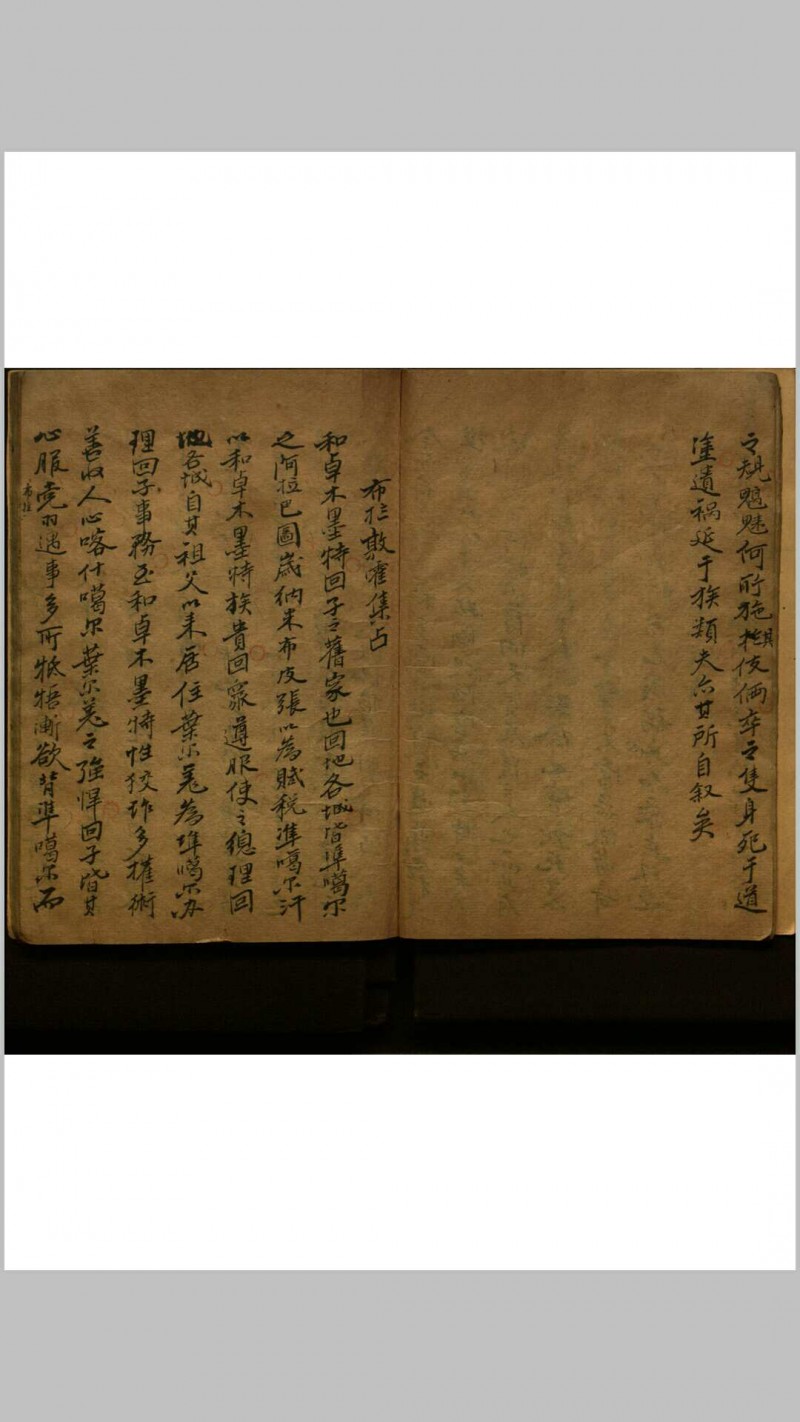 之規魍魅何所施其伎俩卒之隻身死于道
塗遺禍延于族類夫亦其所自叙矣
布拉敦霍集占
和卓木墨特回子之舊家也回地各城皆準噶尔
之阿拉巴圖歲納米布皮張以為賦税準噶尔汗
以和卓木墨特族貴回衆遵服使之總理回
地各城自其祖父以来居住葉尔羌為準噶尔办
理回子事務至和卓木墨特性狡詐多權術
善收人心喀什噶尔葉尔羌之強悍回子皆其
心服党羽遇事多所牴牾漸欲背準噶尔而